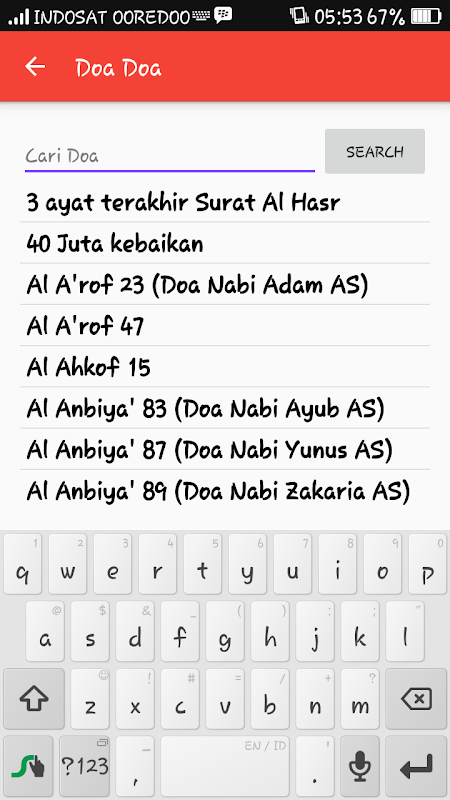 INDOSAT OOREDOO 05:53 67%
Doa Doa
Cari Doa
SEARCH
3 ayat terakhir Surat Al Hasr
40 Juta kebaikan
Al A'rof 23 (Doa Nabi Adam AS)
Al A'rof 47
Al Ahkof 15
Al Anbiya' 83 (Doa Nabi Ayub AS)
Al Anbiya' 87 (Doa Nabi Yunus AS)
Al Anbiya' 89 (Doa Nabi Zakaria AS)
1 2 3 4 5 6 7 8 9 0
q w e r t y u i o p
@ $ & _ ( ) : ; "
a s d f g h j k l
! # = / + ?
z x c v b n m
EN / ID
?123 , - . '